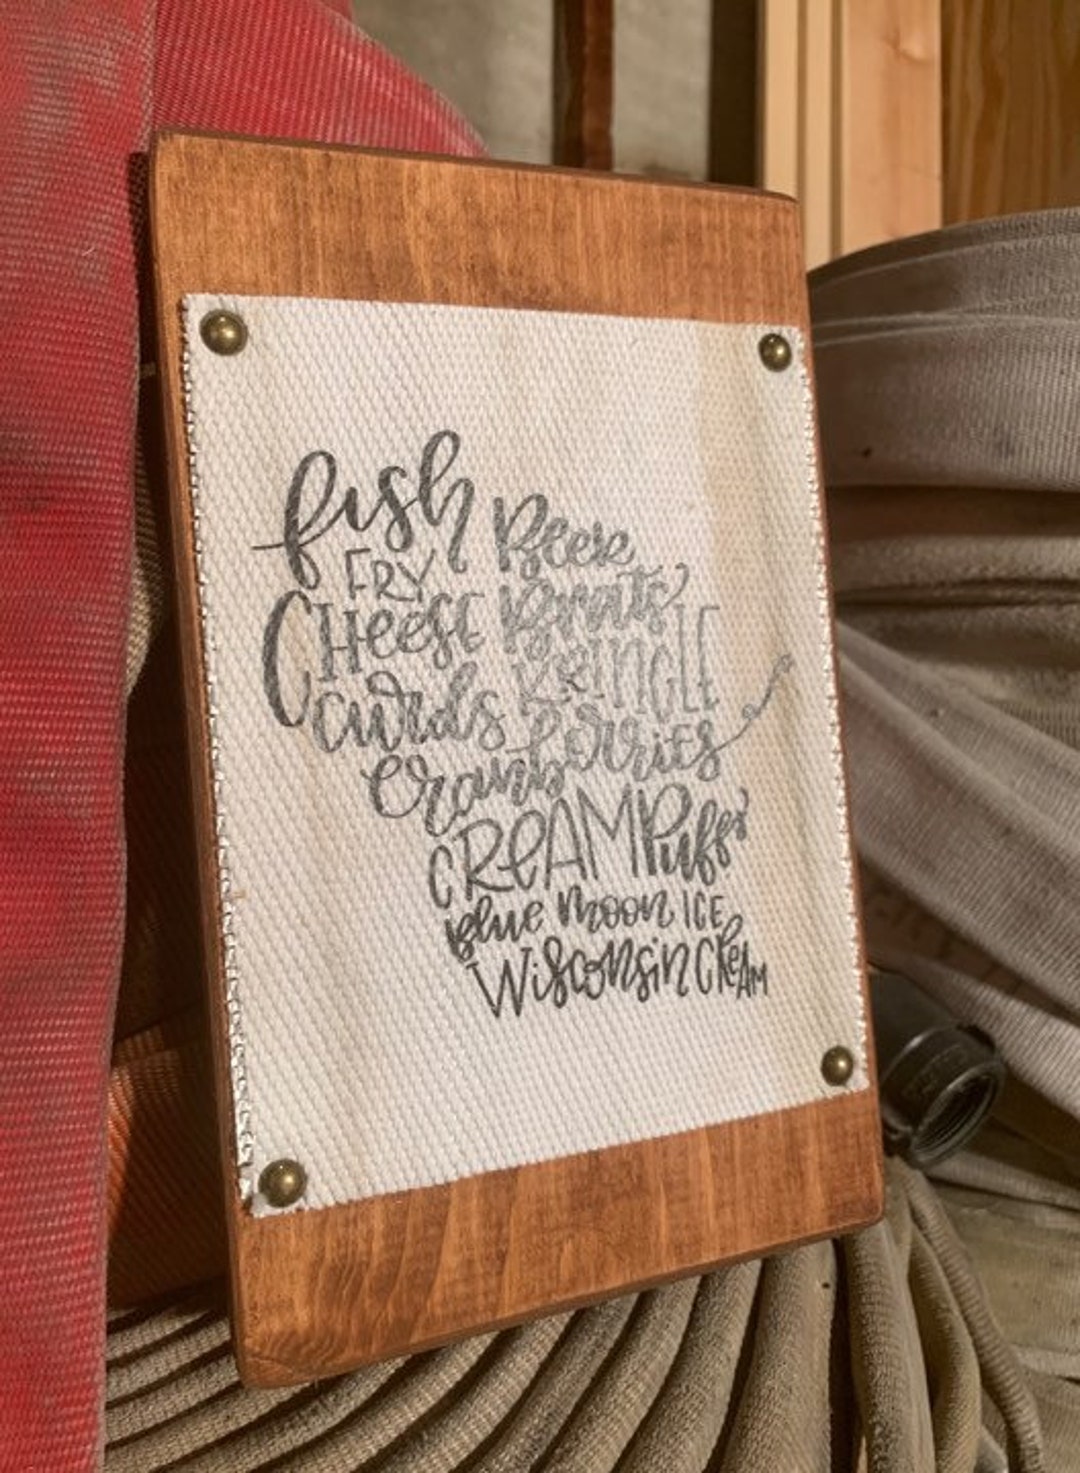 fish
FRY
CHeese
curds
Beer
Brats
KRINGLE
Cranberries
CREAM Puffs
Blue Moon ICE
Wisconsin CReAM